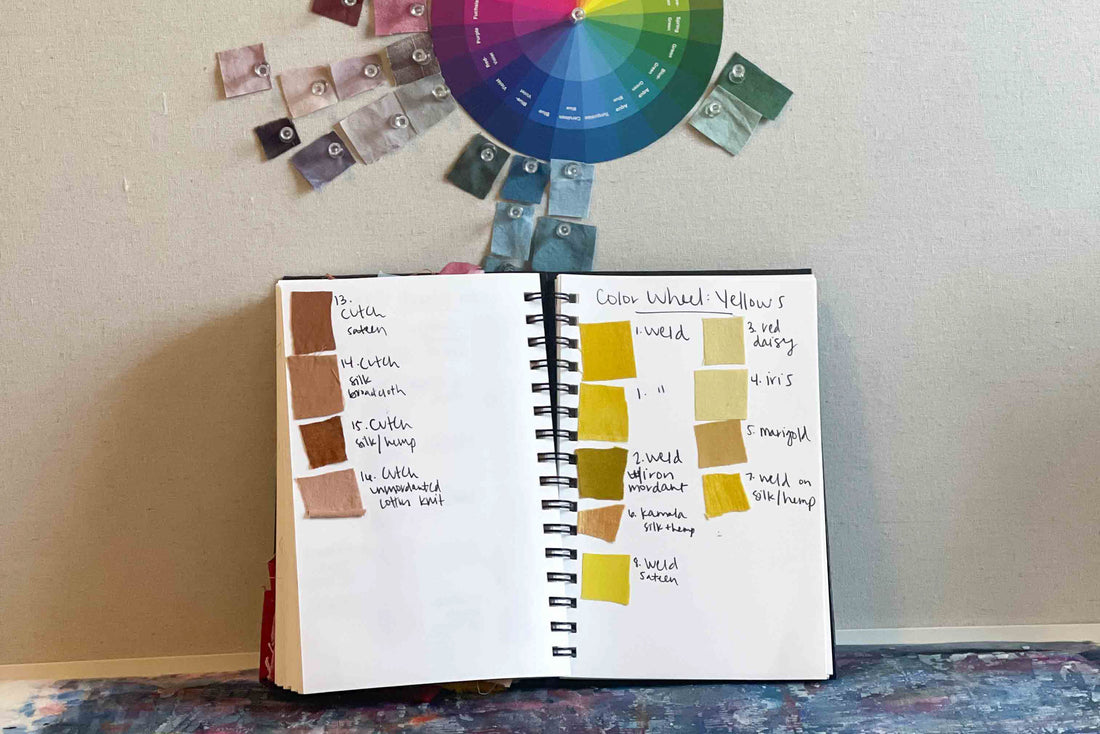 Purple
Red-
Violet
Violet
Blue-
Violet
Blue
Cerulean
Blue
Turquoise
Aqua
Blue-
Green
Green
Spring
Green
13.
Cutch
sateen
14. Cutch
silk
broadcloth
15. Cutch
silk/hemp
16. Cutch
unmordanted
cotton knit
Color Wheel: Yellows
1. Weld
1. "
2. Weld
w/iron
mordant
6. Kamala
silk + hemp
8. Weld
sateen
3. red
daisy
4. iris
5. marigold
7. weld on
silk/hemp